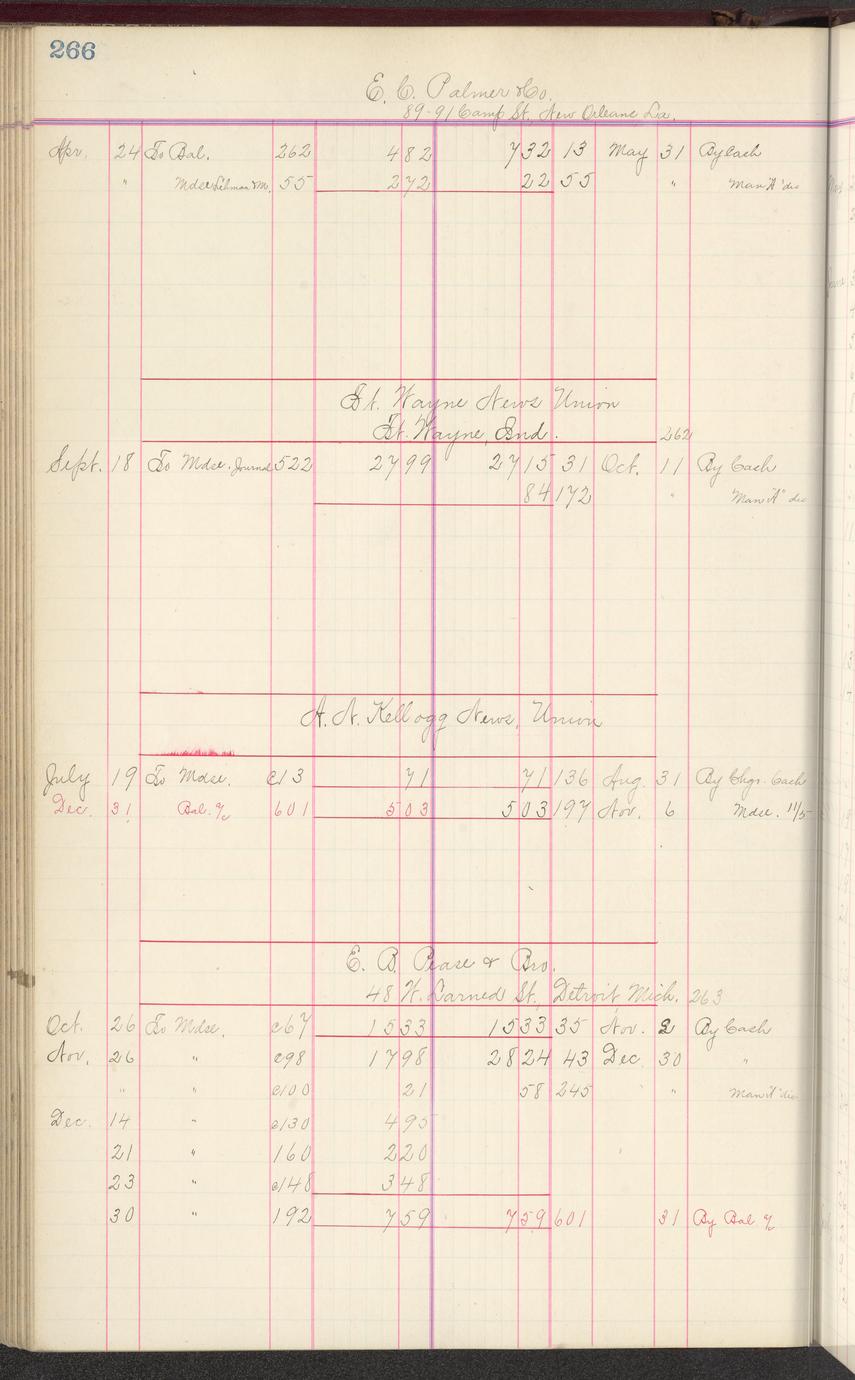 266
E. C. Palmer & Co.
89-91 Camp St. New Orleans La.
Apr. 24 To Bal. 262 482 732 13 May 31 By Cash
" Mdse Lehman M. 55 272 22 55 " Man "A" dis
Ft. Wayne News Union
Ft. Wayne, Ind. 262
Sept. 18 To Mdse. Journal 522 2799 2715 31 Oct. 11 By Cash
84 172 " Man "A" dis
A. N. Kellogg News. Union
July 19 To Mdse. c13 71 71 136 Aug. 31 By Chgs. Cash
Dec. 31 Bal. % 601 503 503 197 Nov. 6 Mdse. 11/5
E. B. Pease & Bro.
48 W. Larned St., Detroit Mich. 263
Oct. 26 To Mdse. c67 1533 1533 35 Nov. 2 By Cash
Nov. 26 " c98 1798 2824 43 Dec 30 "
" " c100 21 58 245 " Man "A" dis
Dec. 14 " c130 495
21 " 160 220
23 " c148 348
30 " 192 759 759 601 31 By Bal %